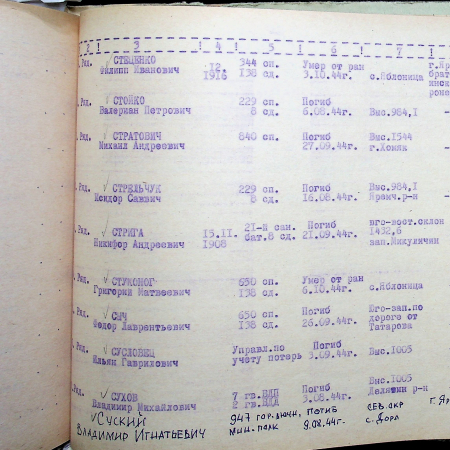 2 ! 3 ! 4 ! 5 ! 6 ! 7 !
Ряд. СТЕЦЕНКО 12. 344 сп. Умер от ран г.Яр
Филипп Иванович 1916 138 сд. 3.10.44г. с.Яблоница брат
Ряд. СТОЙКО 229 сп. Погиб
Валериан Петрович 8 сд. 6.08.44г. Выс.984,I
Ряд. СТРАТОВИЧ 840 сп. Погиб Выс.I544
Михаил Андреевич 27.09.44г. г.Хомяк
Ряд. СТРЕЛЬЧУК 229 сп. Погиб Выс.984,I
Исидор Саввич 8 сд. 16.08.44г. Яремч.р-н
Ряд. СТРИГА 15.II. 2I-й сан. Погиб юго-вост.склон
Никифор Андреевич 1908 бат.8 сд. 21.09.44г. I432,6
зап.Микуличин
Ряд. СТУКОНОГ 650 сп. Умер от ран
Григорий Матвеевич I38 сд. 6.10.44г. с.Яблоница
Ряд. СЫЧ 650 сп. Погиб Юго-зап.по
Федор Лаврентьевич I38 сд. 26.09.44г. дороге от
Татарова
Ряд. СУСЛОВЕЦ Управл.по Погиб
Ильяк Гаврилович учету потерь 3.09.44г. Выс.I005
Выс.I005
Ряд. СУХОВ 7 гв. Погиб Делятин р-н
Владимир Михайлович 2 гв. 3.08.44г.
Суский 947 гор. Погиб сев.окр г. Яр
Владимир Игнатьевич мин.полк 9.08.44г. с.Дора